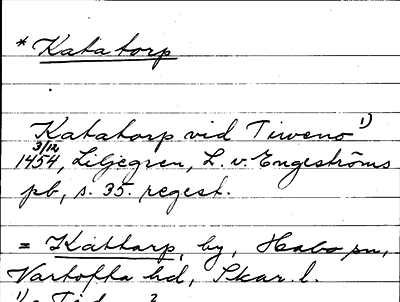 * Katatorp
Katatorp vid Tiweno 1)
3/12
1454, Liljegren, L. v. Engeströms
pb, s. 35. regest.
= Kättarp, by, Habo sn,
Vartofta hd, Skar. l.
1)